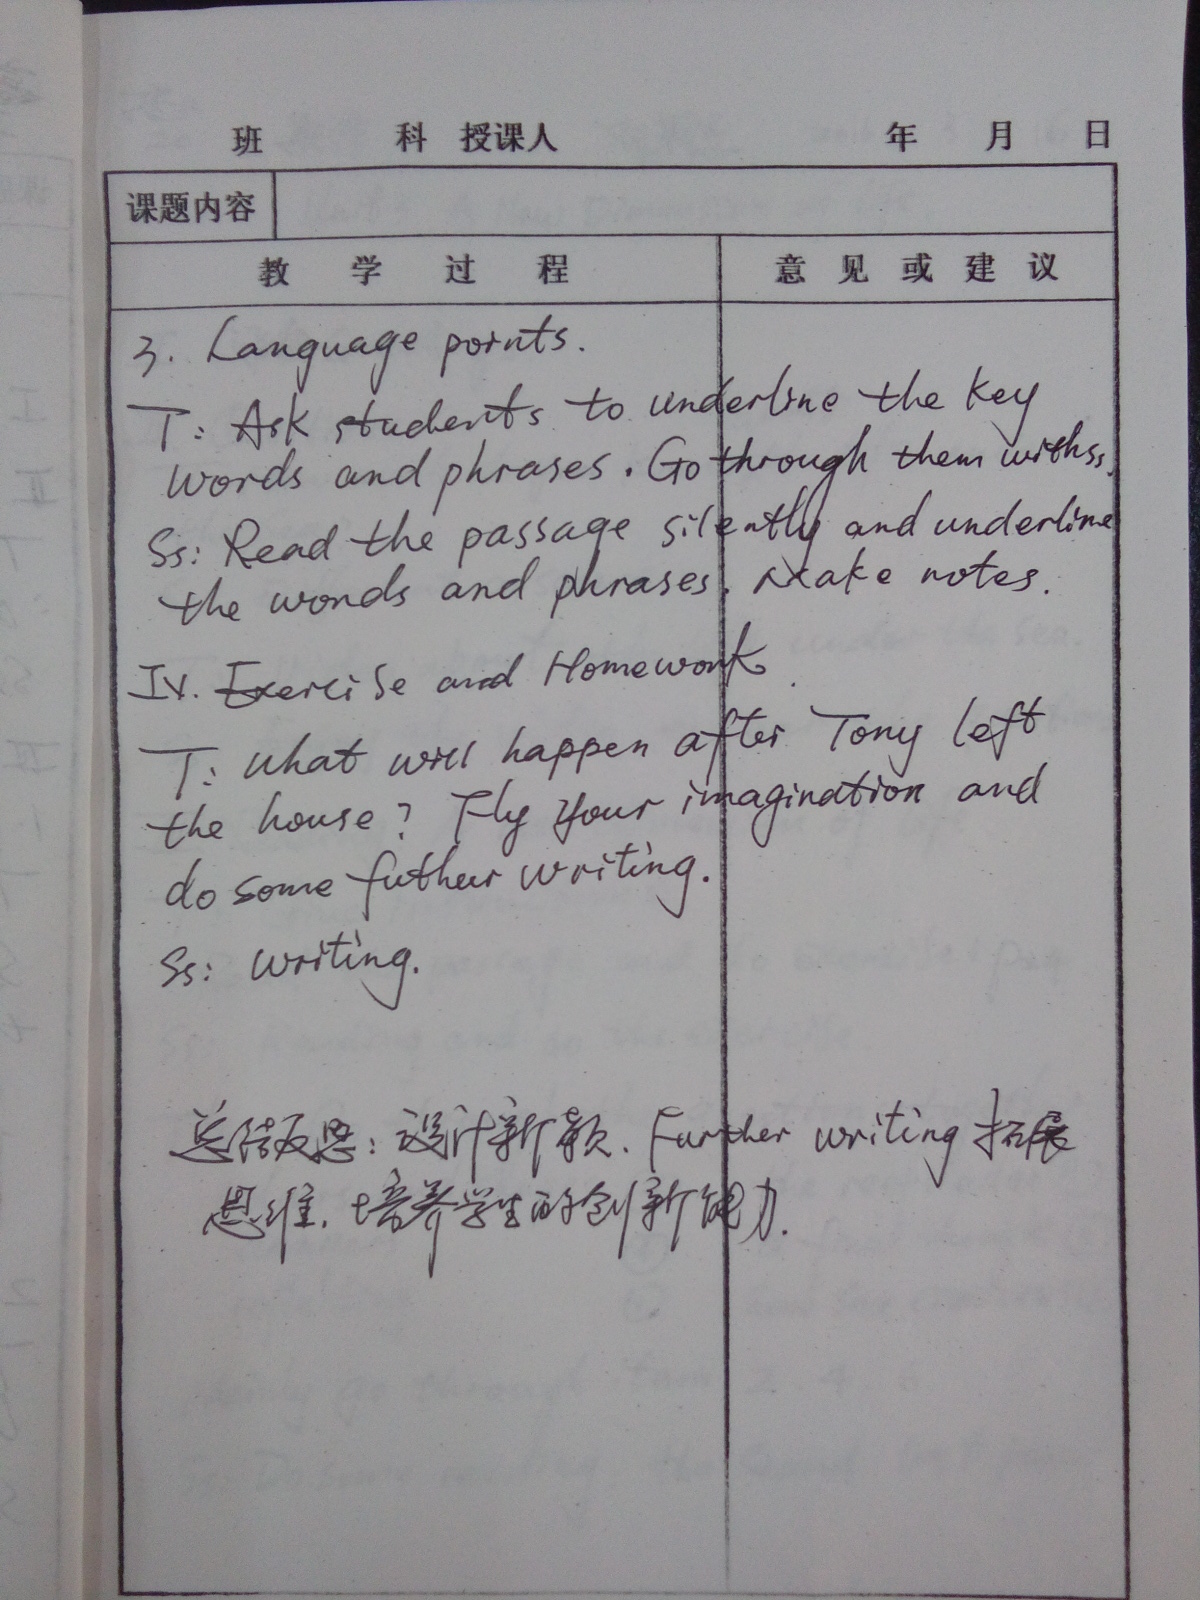 班 科 授课人 年 月 日
课题内容
教 学 过 程 意 见 或 建 议
3. Language points.
T: Ask students to underline the key
words and phrases. Go through them with ss.
Ss: Read the passage silently and underline
the words and phrases. Make notes.
IV. Exercise and Homework.
T: What will happen after Tony left
the house? Fly your imagination and
do some futher writing.
Ss: writing.
总结反思: 设计新颖. Further writing 拓展
思维. 培养学生的创新能力.